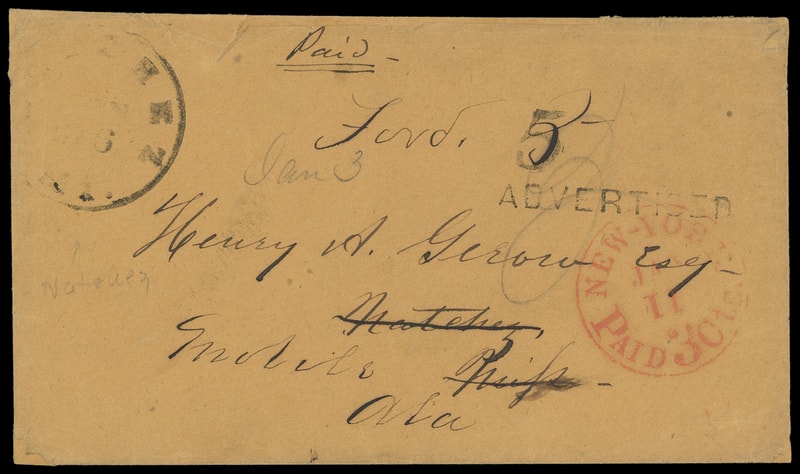 Paid
HEZ
Ford. 5
Jan 3
ADVERTISED
Henry A. Gerow Esq
NEW-YORK
11
PAID 3 Cts
Natchez
Natchez,
Mobile Miss
Ala